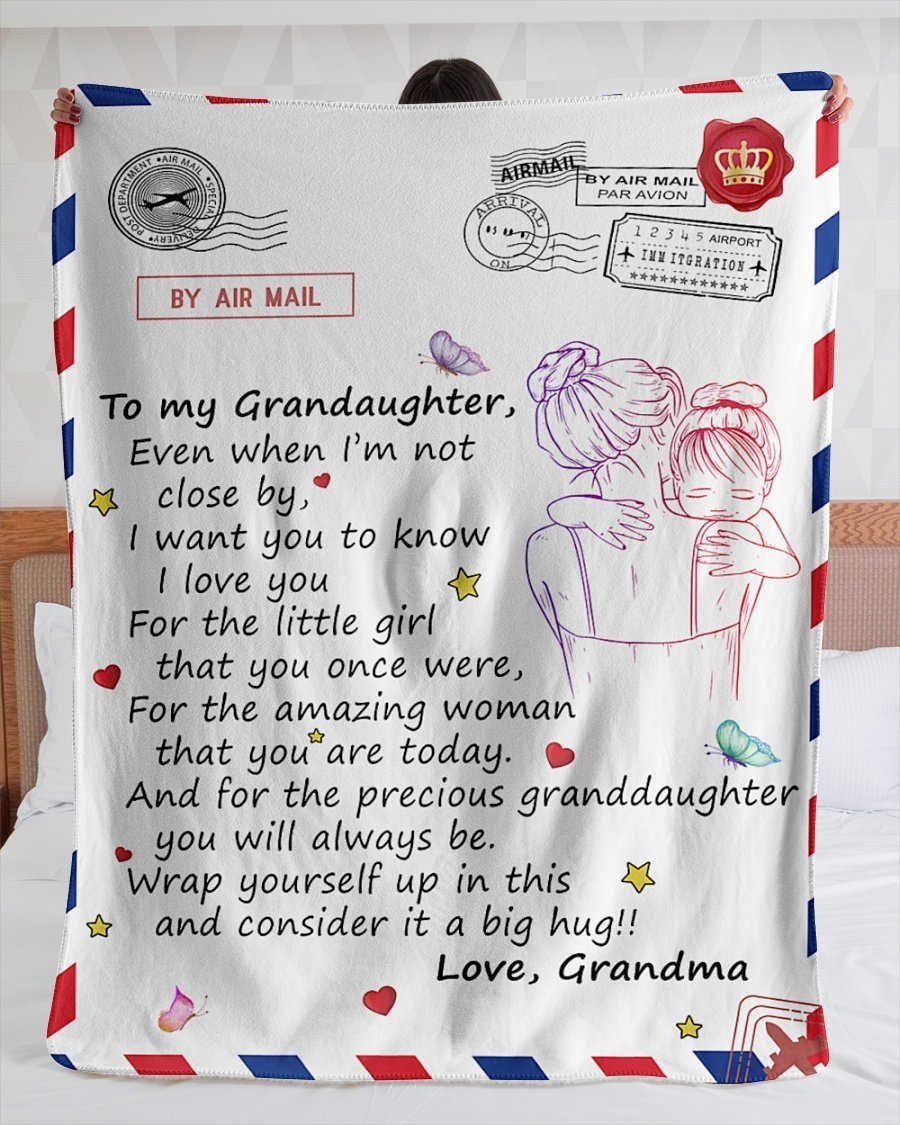 POST DEPARTMENT • AIR MAIL • SPECIAL DELIVERY •
AIRMAIL
BY AIR MAIL
PAR AVION
ARRIVAL
ON
1 2 3 4 5 AIRPORT
IMMITGRATION
BY AIR MAIL
To my Grandaughter,
Even when I'm not
close by,
I want you to know
I love you
For the little girl
that you once were,
For the amazing woman
that you are today.
And for the precious granddaughter
you will always be.
Wrap yourself up in this
and consider it a big hug!!
Love, Grandma